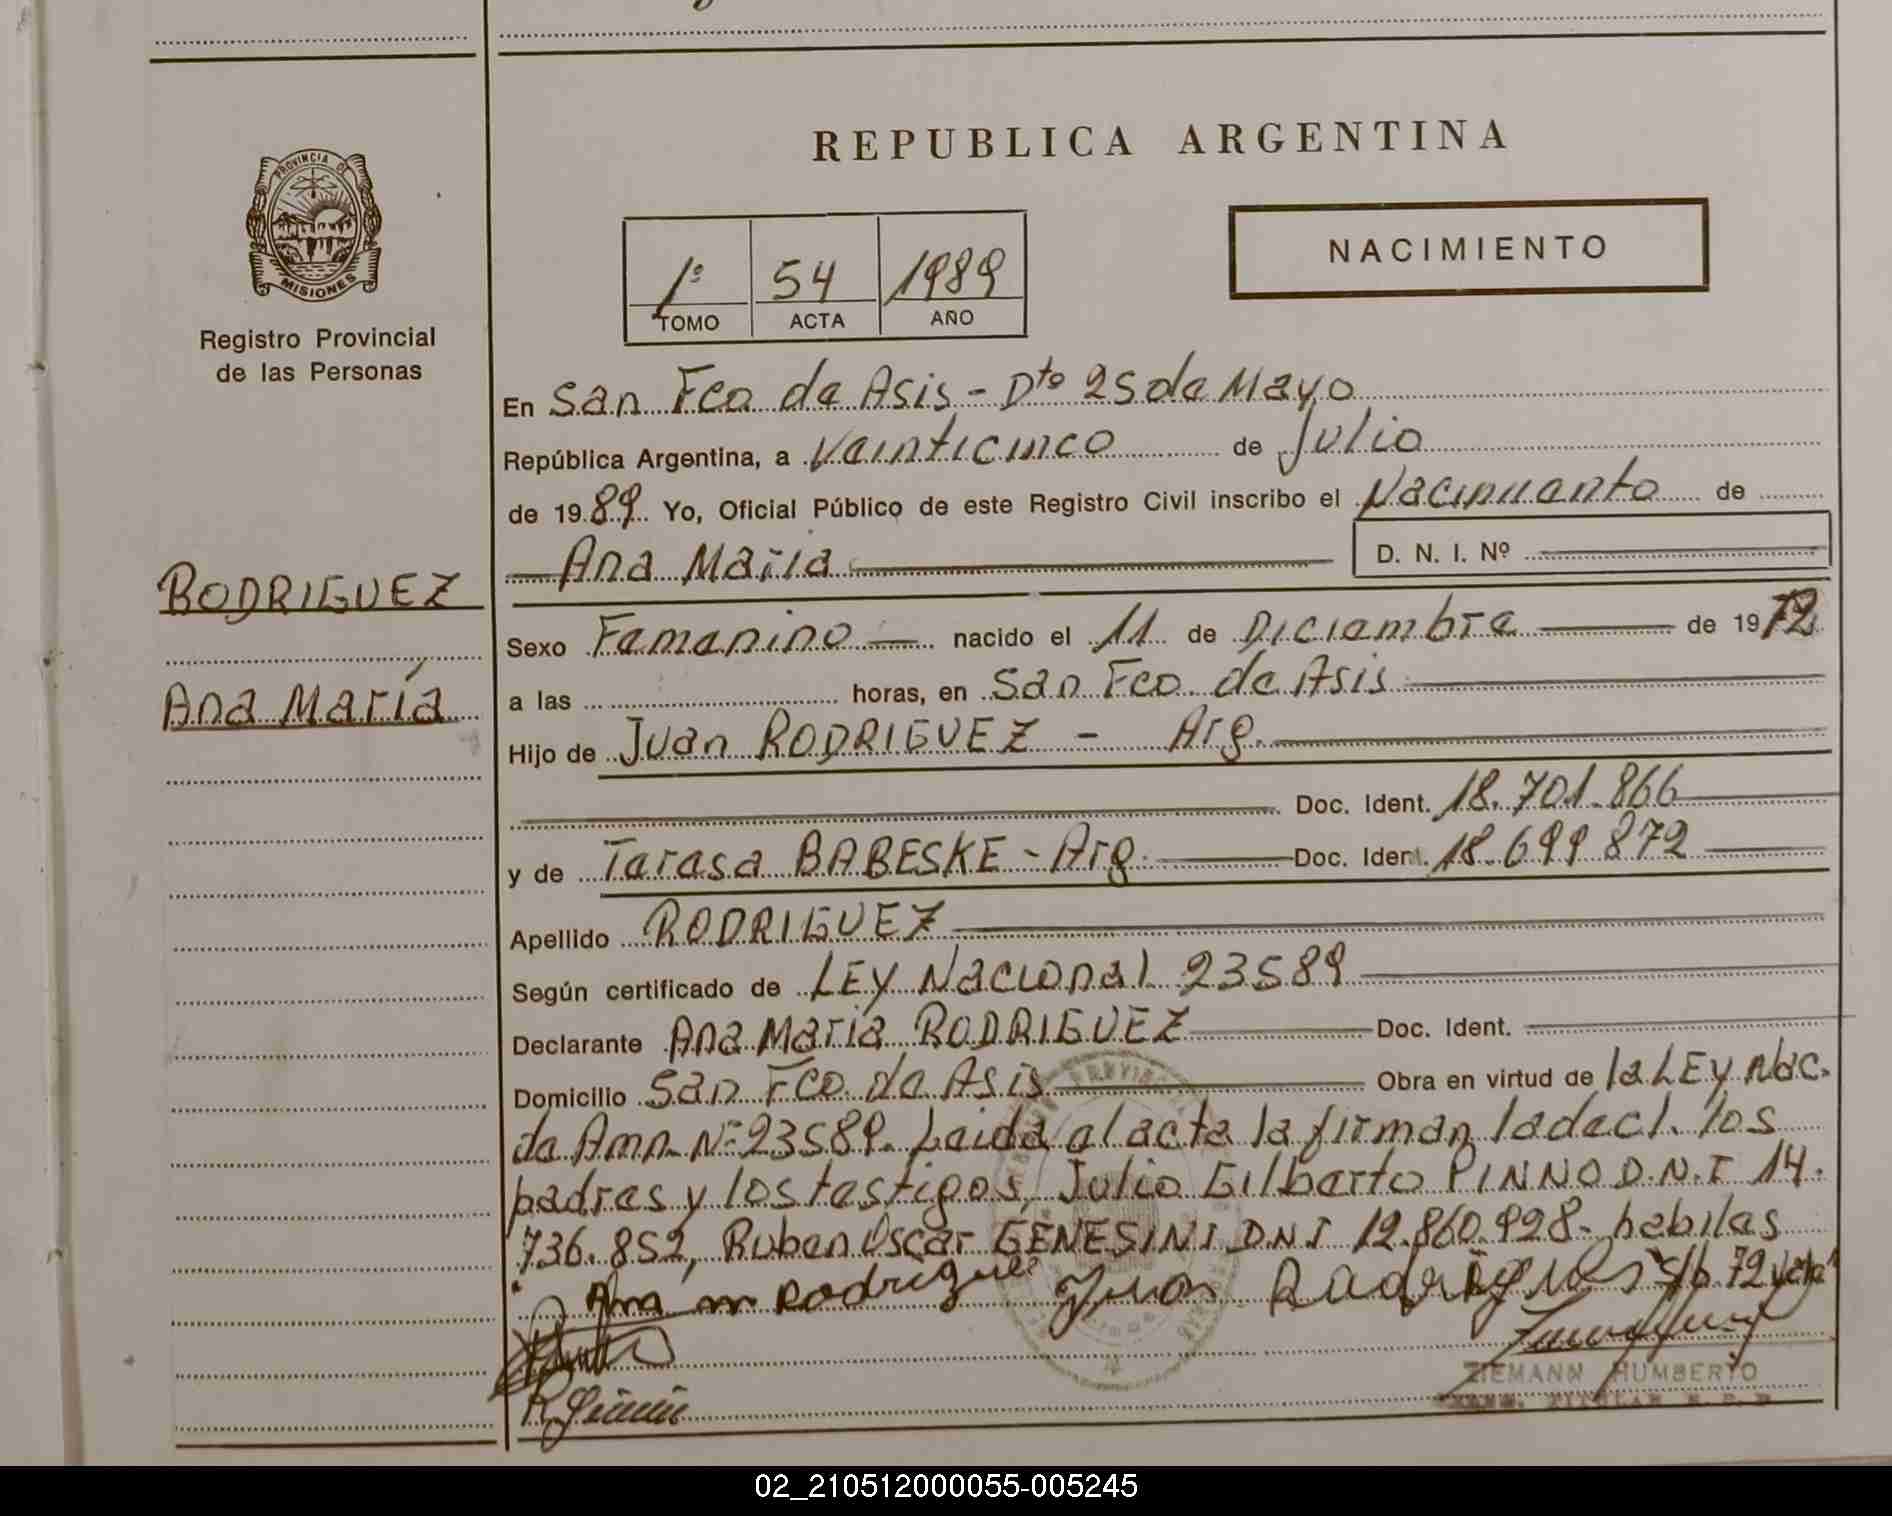 REPUBLICA ARGENTINA
PROVINCIA DE
MISIONES
Registro Provincial
de las Personas
1º 54 1989
TOMO ACTA AÑO
NACIMIENTO
En San Fco de Asis - Dto 25 de Mayo
República Argentina, a Veinticinco de Julio
de 1989 Yo, Oficial Público de este Registro Civil inscribo el Nacimiento de
Ana María D. N. I. Nº
RODRIGUEZ
Ana María
Sexo Femenino nacido el 11 de Diciembre de 1972
a las horas, en San Fco de Asis
Hijo de Juan RODRIGUEZ - Arg.
Doc. Ident. 18.701.866
y de Teresa BABESKE - Arg. Doc. Ident. 18.699.872
Apellido RODRIGUEZ
Según certificado de LEY Nacional 23589
Declarante Ana María RODRIGUEZ Doc. Ident.
Domicilio San Fco. de Asis Obra en virtud de la LEY Nac.
de Amn. Nº 23589. Leida el acta la firman la decl. los
padres y los testigos, Julio Gilberto PINNO D.N.I 14.
736.852, Ruben Oscar GENESINI D.N.I 12.860.928. habiles
Ana m Rodriguez Juan Rodrigues s/b 72 vale
ZIEMANN HUMBERTO
02_210512000055-005245